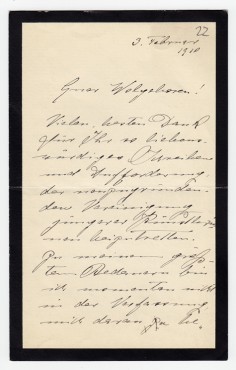 22
3. Februar
1910
Euer Wolgeboren!
Vielen, besten Dank
für Ihr so liebens-
würdiges Schreiben
und Aufforderung
der neuzugründen-
den Vereinigung
jüngerer Künstlerin-
nen beizutretten.
Zu meinem größ-
ten Bedauern bin
ich momentan nicht
in der Verfassung
mich daran zu be-